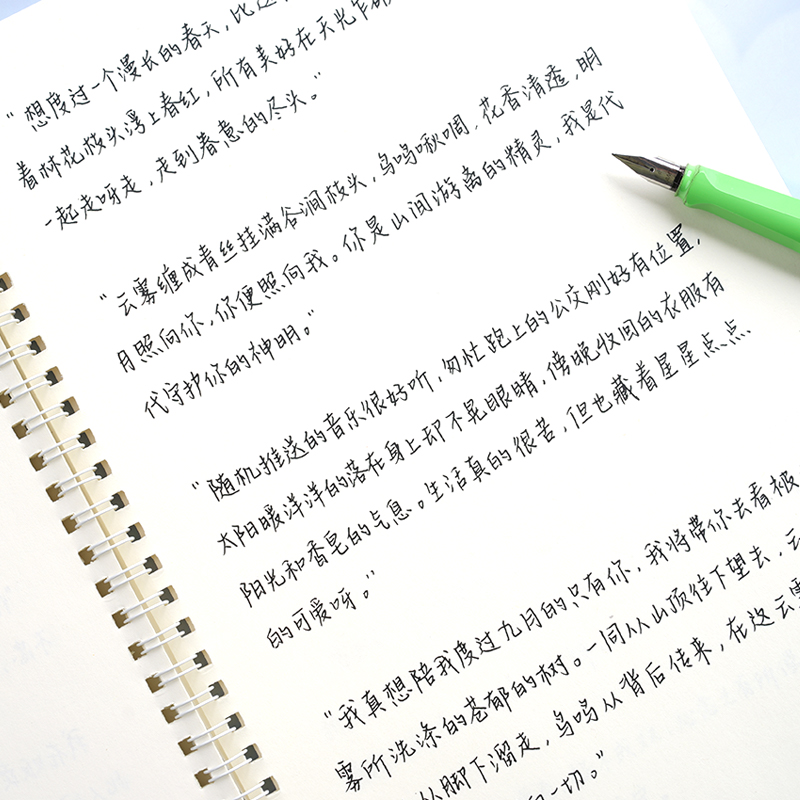 "想度过一个漫长的春天，比这
着林花枝头浮上春红，所有美好在天光乍
一起走呀走，走到春意的尽头。"
"云雾缠成青丝挂满谷涧枝头，鸟鸣啾啁，花香清透，明
月照向你，你便照向我。你是山涧游离的精灵，我是代
代守护你的神明。"
"随机推送的音乐很好听，匆忙跑上的公交刚好有位置，
太阳暖洋洋的落在身上却不晃眼睛，傍晚收回的衣服有
阳光和香皂的气息。生活真的很苦，但也藏着星星点点
的可爱呀。"
"我真想陪我度过九月的只有你，我将带你去看被
雾所洗涤的苍郁的树。一同从山顶往下望去，云
从脚下溜走，鸟鸣从背后传来，在这云雾
一切。"